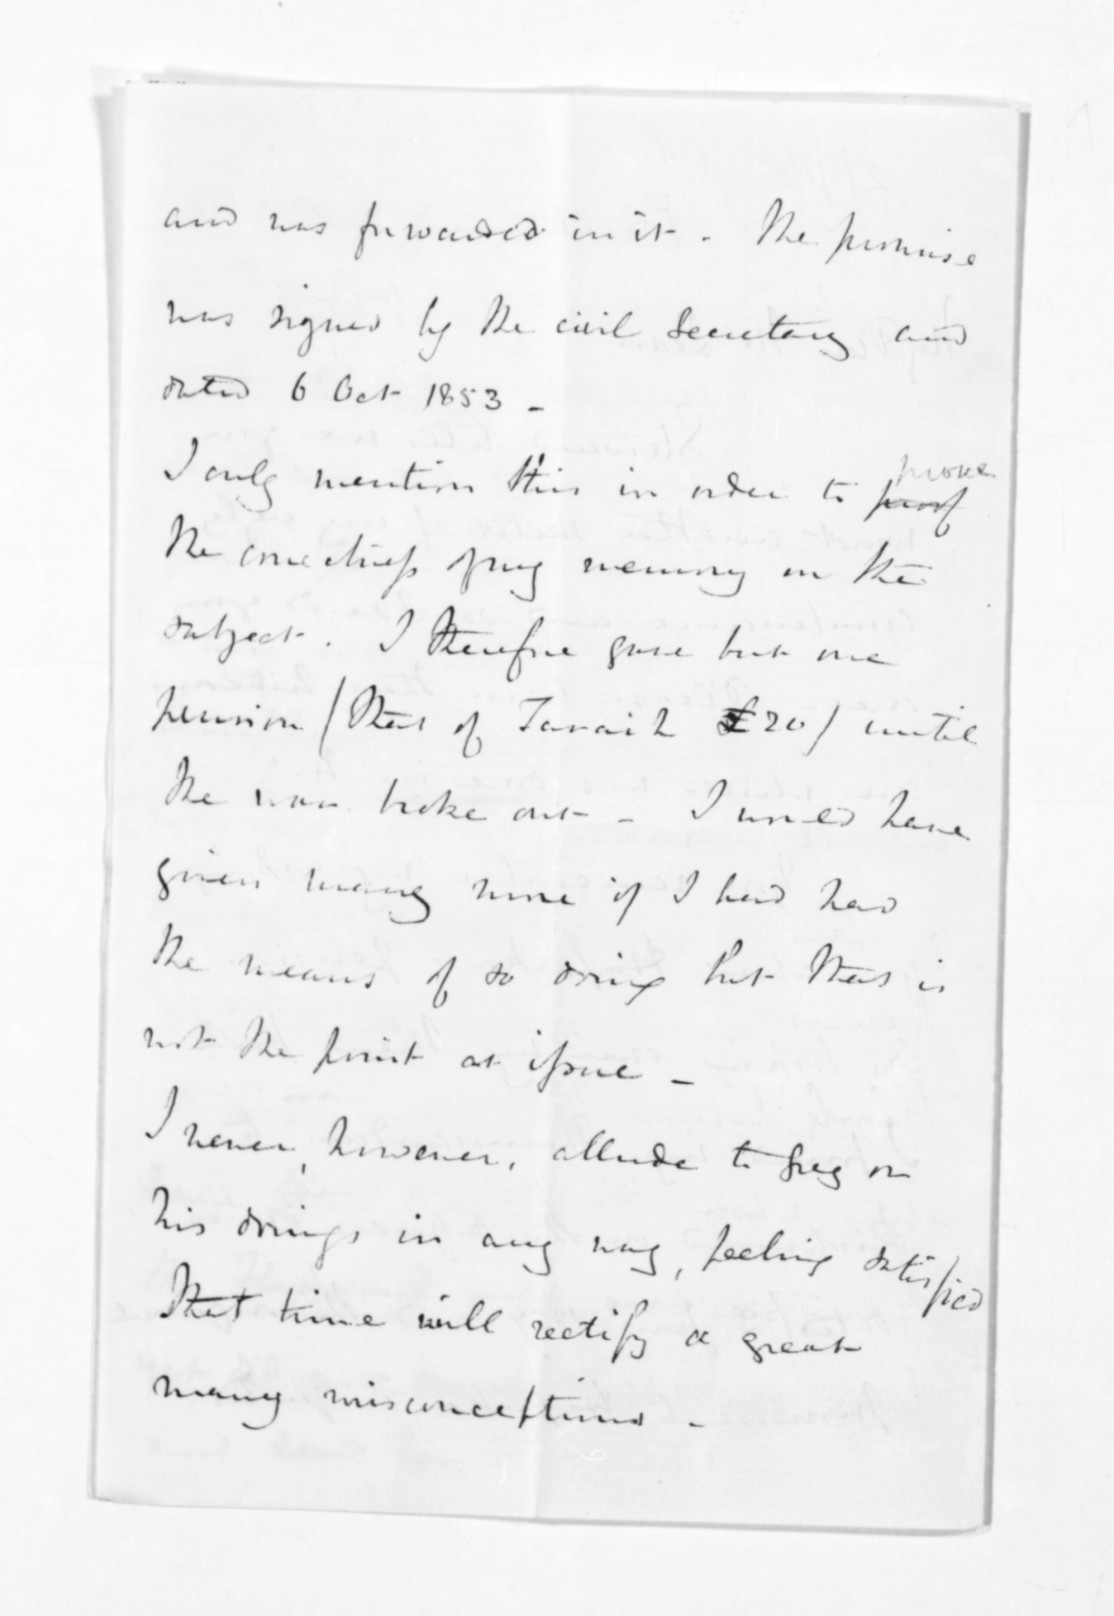 and was forwarded in it - The promise
was signed by the civil Secretary and
dated 6 Oct 1853 -
I only mention this in order to proof prove
the correctness of my memory on the
subject. I therefore gave but one
pension (that of Tavaih £20) until
the war broke out - I would have
given many more if I had had
the means of so doing but that is
not the point at issue -
I never, however, allude to Grey or
his doings in any way, feeling satisfied
that time will rectify a great
many misconceptions -